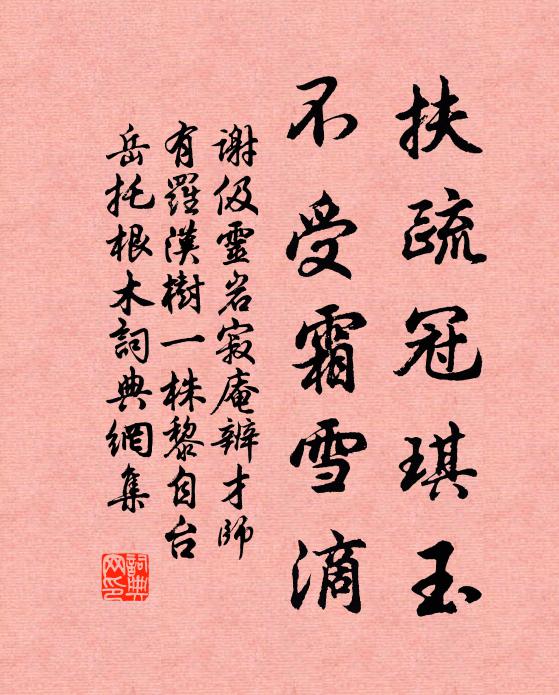 扶疏冠琪玉
不受霜雪滴
謝伋靈岩寂庵辨才師
有羅漢樹一株黎自台
岳托根木詞典網集
詞典
网印